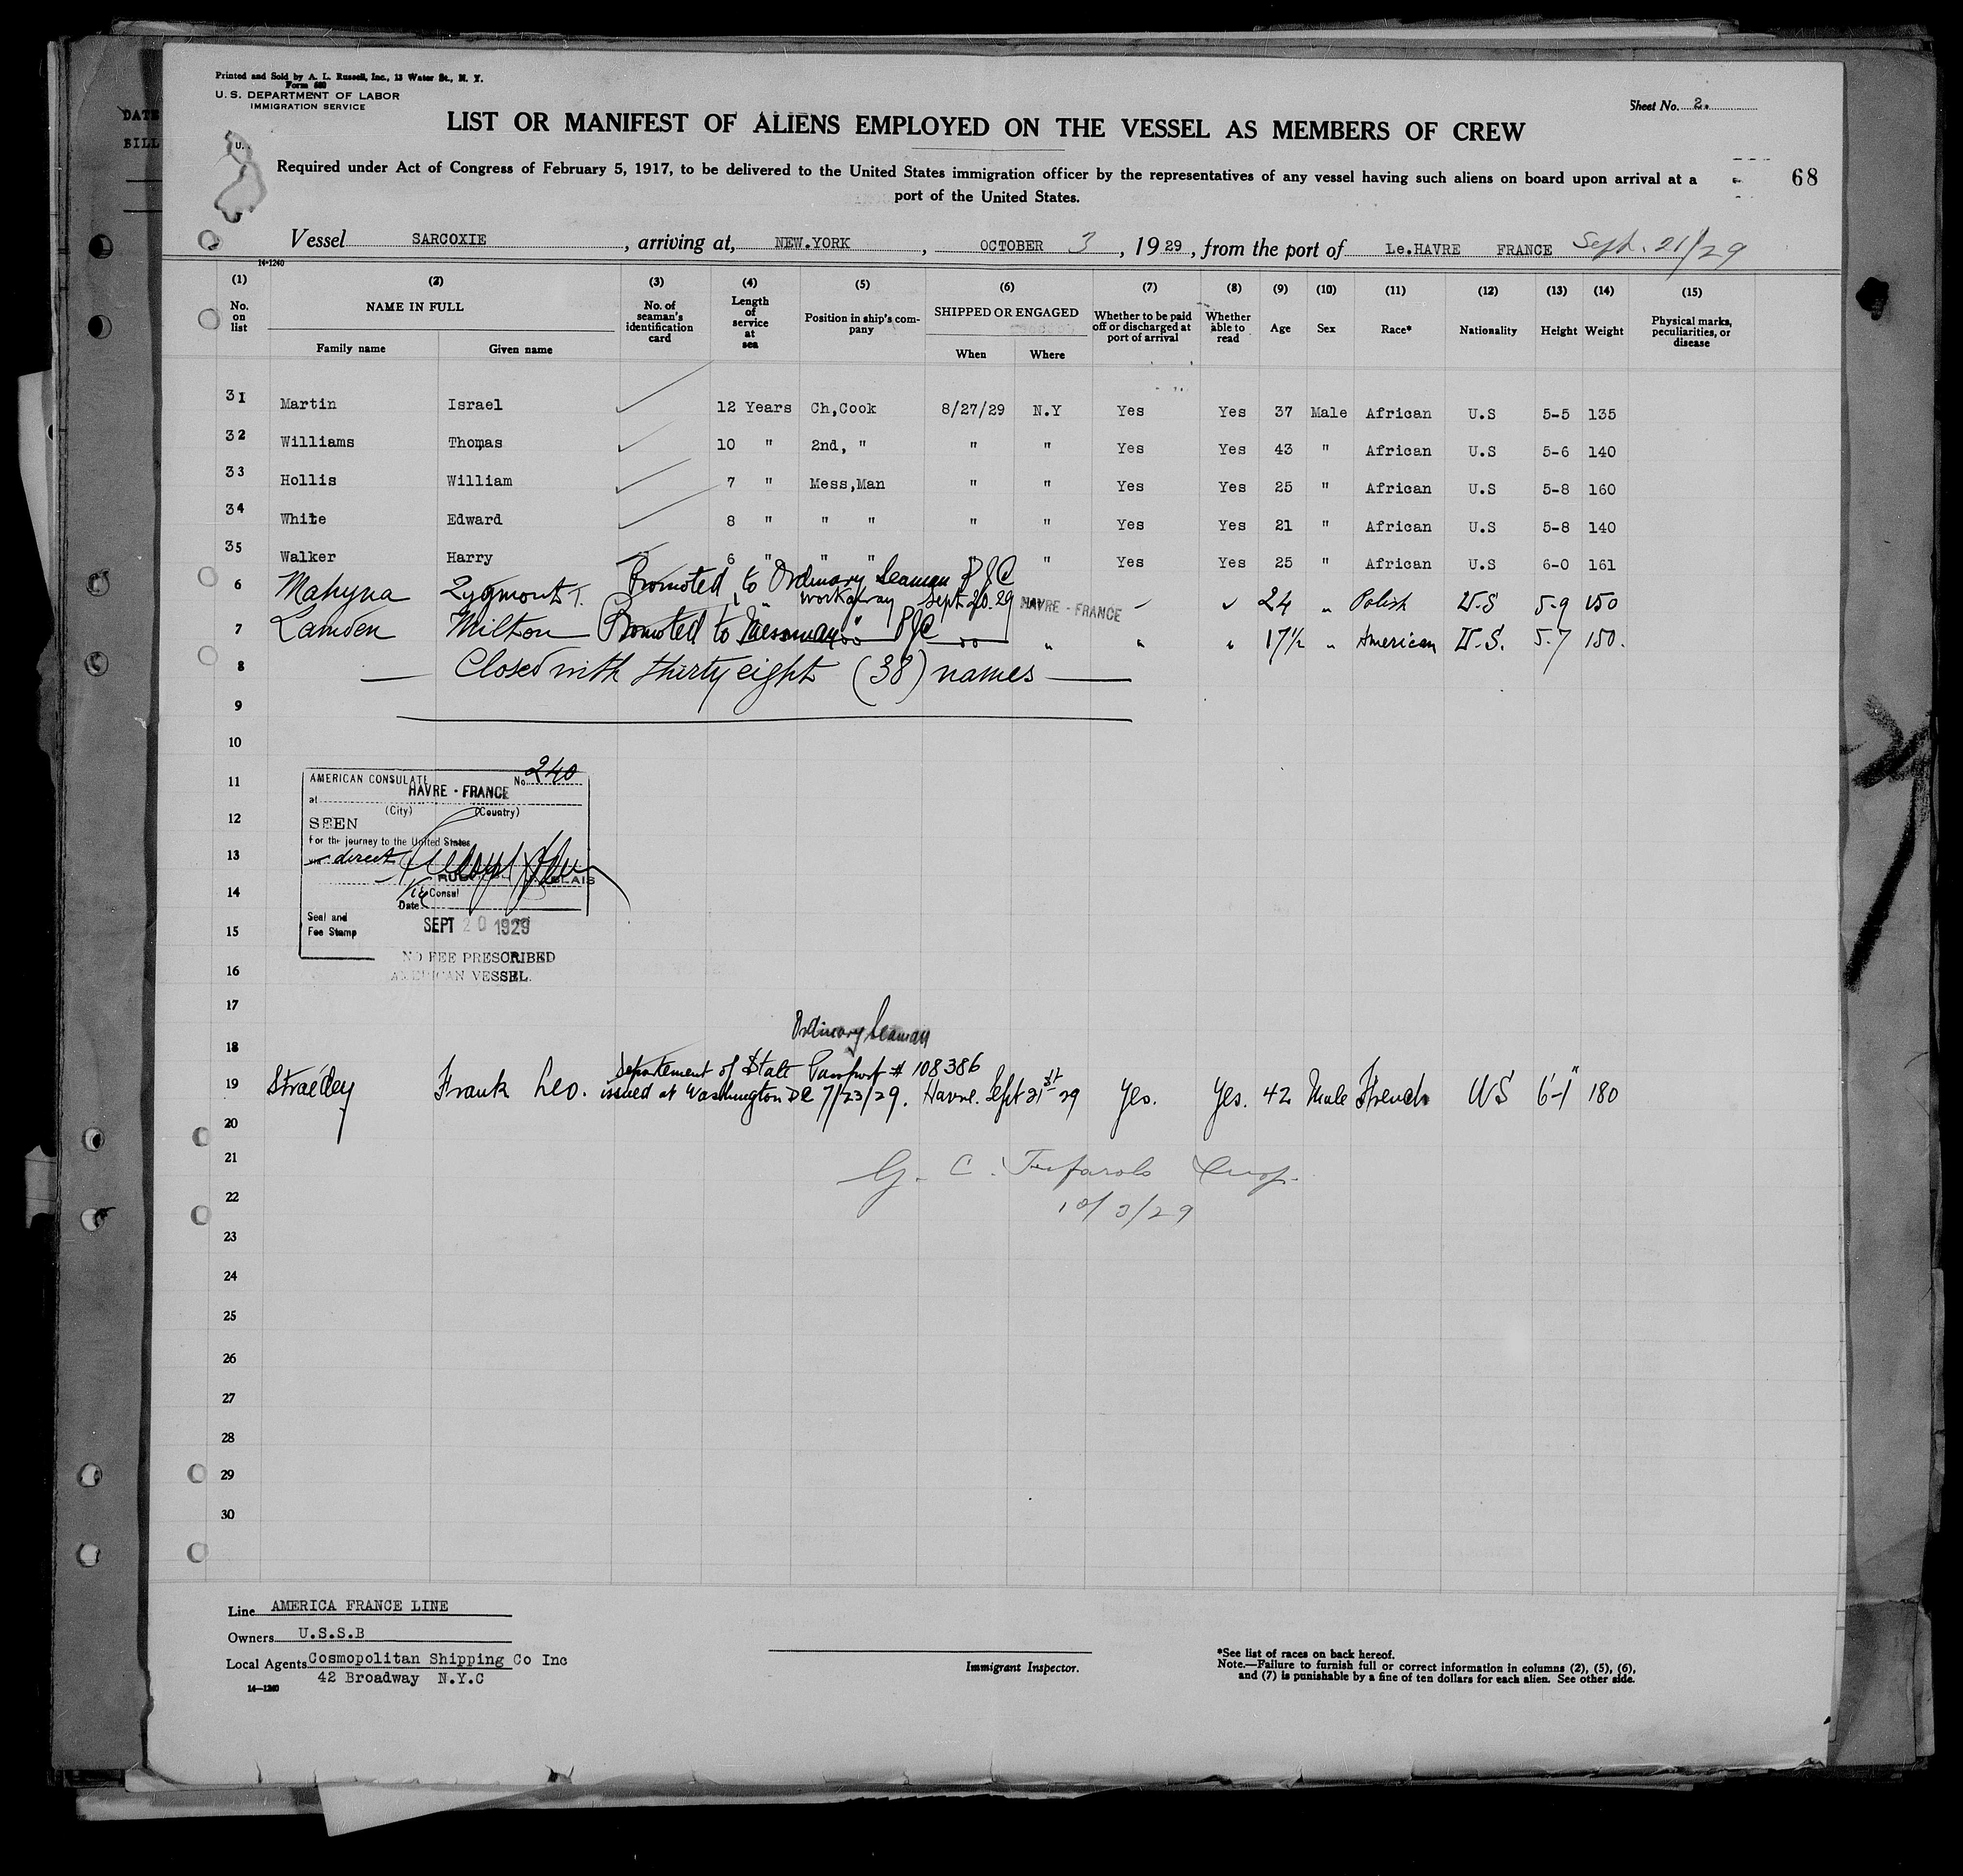 Printed and Sold by A. L. Russell, Inc., 13 Water St., N. Y.
Form 680
U. S. DEPARTMENT OF LABOR
IMMIGRATION SERVICE
Sheet No. 2.
DATE
BILL
U.
LIST OR MANIFEST OF ALIENS EMPLOYED ON THE VESSEL AS MEMBERS OF CREW
Required under Act of Congress of February 5, 1917, to be delivered to the United States immigration officer by the representatives of any vessel having such aliens on board upon arrival at a
port of the United States.
68
Vessel SARCOXIE , arriving at, NEW.YORK , OCTOBER 3 , 19 29 , from the port of Le.HAVRE FRANCE Sept. 21/29
14-1240
(1) (2) (3) (4) (5) (6) (7) (8) (9) (10) (11) (12) (13) (14) (15)
No. on list NAME IN FULL Family name Given name No. of seaman's identification card Length of service at sea Position in ship's company SHIPPED OR ENGAGED When Where Whether to be paid off or discharged at port of arrival Whether able to read Age Sex Race* Nationality Height Weight Physical marks, peculiarities, or disease
31 Martin Israel 12 Years Ch,Cook 8/27/29 N.Y Yes Yes 37 Male African U.S 5-5 135
32 Williams Thomas 10 " 2nd, " " " Yes Yes 43 " African U.S 5-6 140
33 Hollis William 7 " Mess,Man " " Yes Yes 25 " African U.S 5-8 160
34 White Edward 8 " " " " " Yes Yes 21 " African U.S 5-8 140
35 Walker Harry 6 " " " " " Yes Yes 25 " African U.S 6-0 161
Promoted to Ordinary Seaman
6 Mahyna Zygmont T. workaway Sept 20.29 HAVRE - FRANCE 24 " Polish U.S 5-9 150
7 Lamden Milton Promoted to Messman " " " 17½ " American U.S. 5-7 150.
8 Closed with thirty eight (38) names
9
10
11
12
13
14
15
16
AMERICAN CONSULATE No. 240
at HAVRE - FRANCE
(City) (Country)
SEEN
For the journey to the United States
via direct
Vice Consul
Date
Seal and
Fee Stamp
SEPT 20 1929
NO FEE PRESCRIBED
AMERICAN VESSEL.
17
Ordinary Seaman
18
Departement of State Passport # 108386
19 Straedey Frank Leo. issued at Washington DC 7/23/29. Havre. Sept 21st 29 Yes. Yes. 42 Male French US 6'-1" 180
20
21
G. C.
22
10/3/29
23
24
25
26
27
28
29
30
Line AMERICA FRANCE LINE
Owners U.S.S.B
Local Agents Cosmopolitan Shipping Co Inc
42 Broadway N.Y.C
14-1240
Immigrant Inspector.
*See list of races on back hereof.
Note.—Failure to furnish full or correct information in columns (2), (5), (6),
and (7) is punishable by a fine of ten dollars for each alien. See other side.